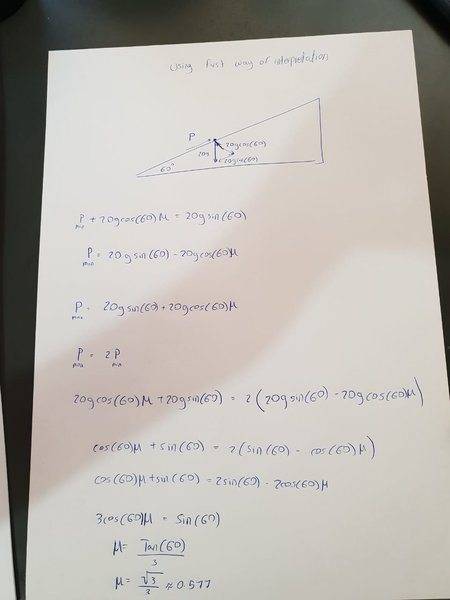 Using first way of interpretation
P
20g
20gcos(60)
20gsin(60)
60°
P min + 20gcos(60)μ = 20gsin(60)
P min = 20gsin(60) - 20gcos(60)μ
P max = 20gsin(60) + 20gcos(60)μ
P max = 2P min
20gcos(60)μ + 20gsin(60) = 2(20gsin(60) - 20gcos(60)μ)
cos(60)μ + sin(60) = 2(sin(60) - cos(60)μ)
cos(60)μ + sin(60) = 2sin(60) - 2cos(60)μ
3cos(60)μ = sin(60)
μ = Tan(60)/3
μ = √3/3 ≈ 0.577